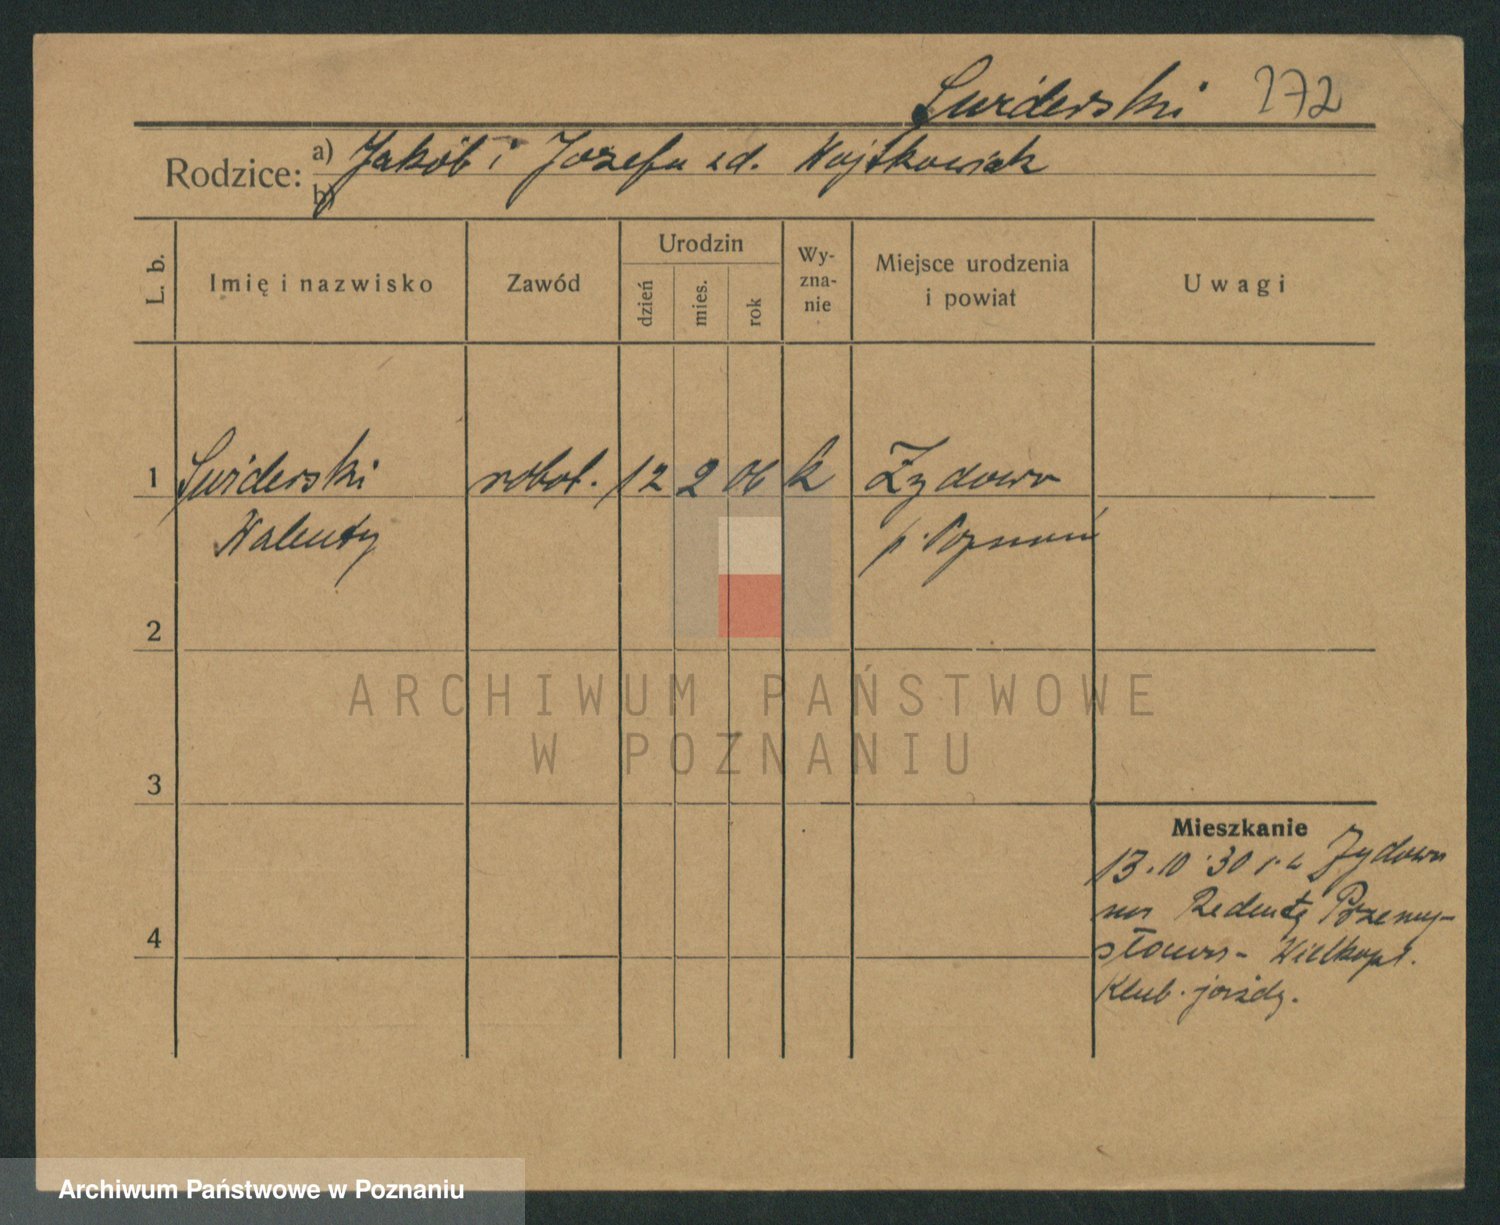 Świderski 272
Rodzice: a) Jakób i Józefa zd. Wojtkowiak
b)
L. b.
Imię i nazwisko
Zawód
Urodzin
dzień
mies.
rok
Wy-
zna-
nie
Miejsce urodzenia
i powiat
Uwagi
1 Świderski robot. 12 2 06 k Żydowo
Walenty p. Poznań
2
ARCHIWUM PAŃSTWOWE
W POZNANIU
3
Mieszkanie
13.10.30 r. z Żydowa
na Redutę Przemy-
4
sława - Wielkopol.
Klub. jazdy.
Archiwum Państwowe w Poznaniu